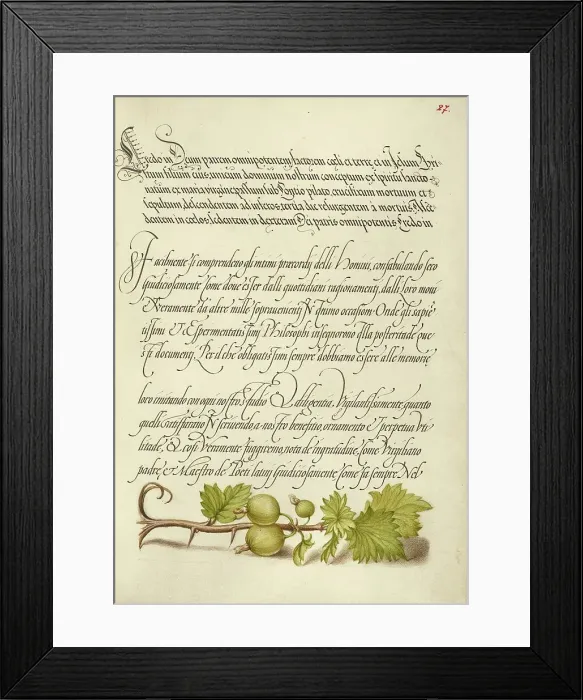 27.
Credo in Deum patrem omnipotentem factorem cœli et terre, et in Jesum Chri-
stum filium eius, unicum dominum nostrum conceptum ex spiritu sancto
natum ex maria virgine passum sub Pontio pilato, crucifixum mortuum et
sepultum, descendentem ad inferos, tertia die resurgentem à mortuis, Asce
dentem in cœlos, sedentem in dexteram Dei patris omnipotentis Credo in
Facilmente si comprendeno gli intimi precordij delli Homini, confabulando sero
giudiciosamente, come doue esser dalli quottidiani ragionamenti, dalli loro moui
Et veramente da altre mille sopravenienti occasioni. Onde gli sapie
tissimi Et Esperimentatissimi Philosophi insegnorono alla posteritade que
sti documenti, Per il che obligatissimi sempre dobbiamo essere alle memorie
loro imitando con ogni nostro studio Et diligentia, Vigilantissamente quanto
quelli s'affaticano In ciruendo a nostro beneficio, ornamento et perpetua Vti
litade, Et così Veramente fuggiremo, nota de ingratitudine, Come Virgiliano
padre, et Maestro de Poeti latini giudiciosamente Come fa sempre Nel